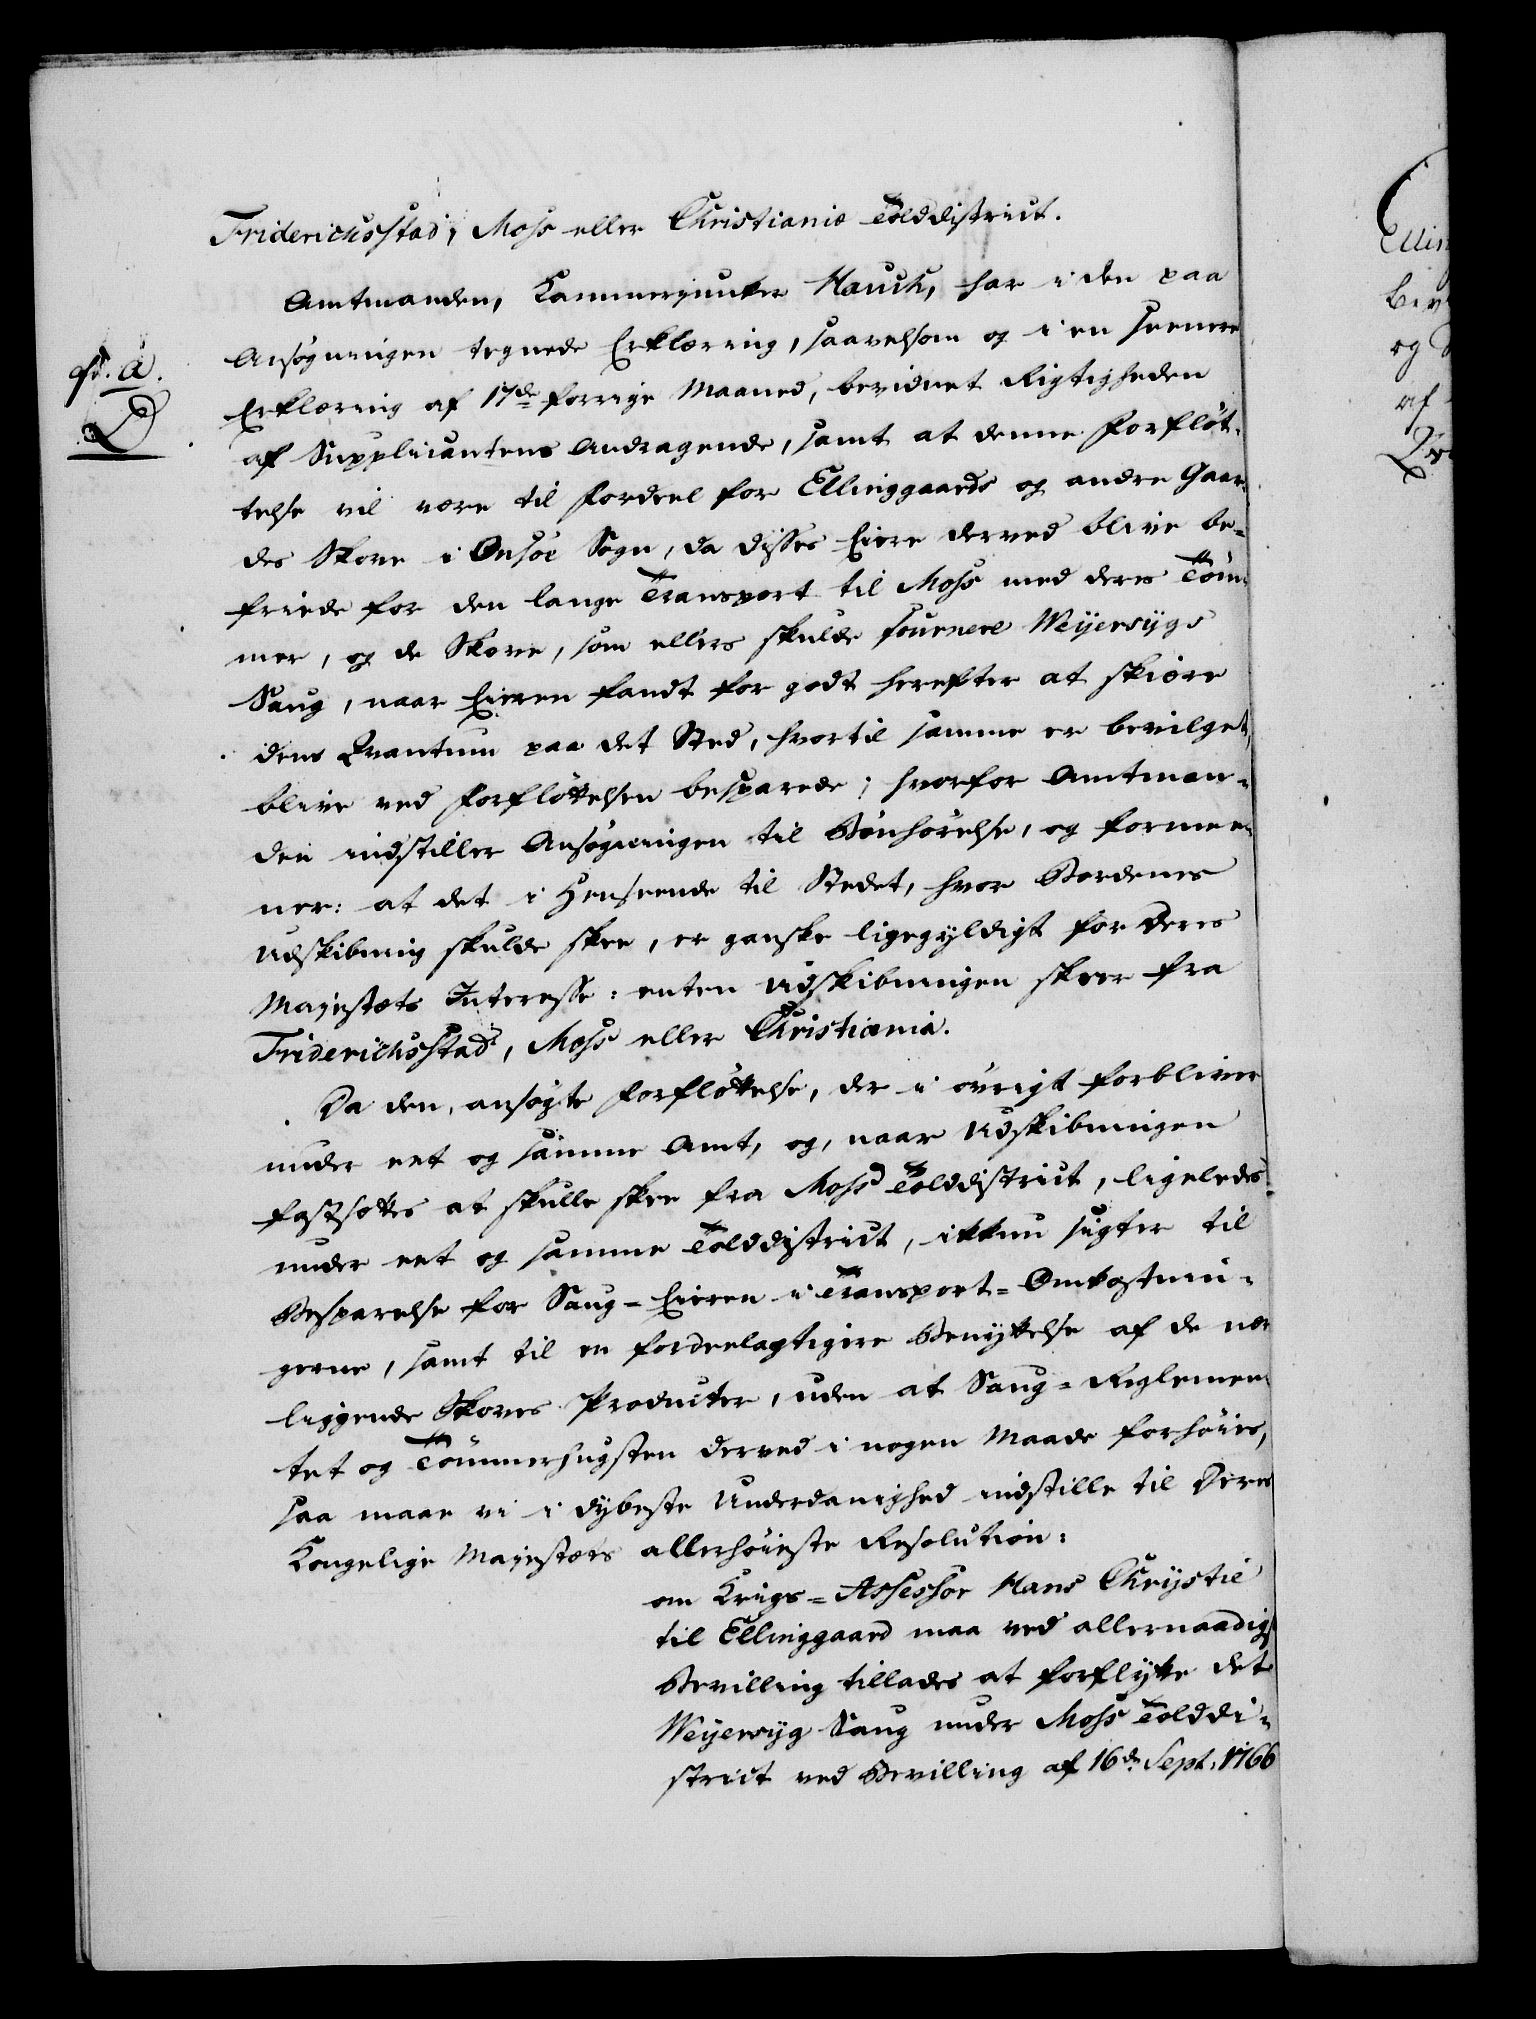 Friderichsstad, Moss eller Christiania Tolddistrict.
Amtmanden, Kammerjunker Hauch, har i den paa
fol. a.
D
Ansøgningen tegnede Erklæring, saavelsom og i en seenere
Erklæring af 17de forrige Maaned, bevidnet Rigtigheden
af Supplicantens Andragende, samt at denne Forfløt-
telse vil være til Fordeel for Ellinggaards og andre Gaar-
des Skove i Onsøe Sogn, da disses Eiere derved blive be-
friede for den lange Transport til Moss med deres Tøm-
mer, og de Skove, som ellers skulde fournere Weyersygs
Saug, naar Eieren fandt for godt herefter at skiære
dens Qvantum paa det Sted, hvortil samme er bevilget,
blive ved Forfløttelsen besparede; hvorfor Amtman-
den indstiller Ansøgningen til Bønhørelse, og formee-
ner: at det i Henseende til Stedet, hvor Bordenes
Udskibning skulde skee, er ganske ligegyldigt for Deres
Majestæts Interesse: enten Udskibningen skeer fra
Friderichsstad, Moss eller Christiania.
Da den ansøgte Forfløttelse, der i øvrigt forbliver
under eet og samme Amt, og, naar Udskibningen
fastsættes at skulle skee fra Moss Tolddistrict, ligeledes
under eet og samme Tolddistrict, ikkun sigter til
Besparelse for Saug-Eieren i Transport-Omkostnin-
gerne, samt til en fordeelagtigere Benyttelse af de nær
liggende Skoves Producter, uden at Saug-Reglemen-
tet og Tømmerhugsten derved i nogen Maade forhøies,
saa maae vi i dybeste Underdanighed indstille til Deres
Kongelige Majestæts allerhøieste Resolution:
om Krigs-Assessor Hans Chrystie
til Ellinggaard maa ved allernaadigst
Bevilling tillades at forflytte det
Weyersyg Saug under Moss Tolddi-
strict ved Bevilling af 16de Sept. 1766